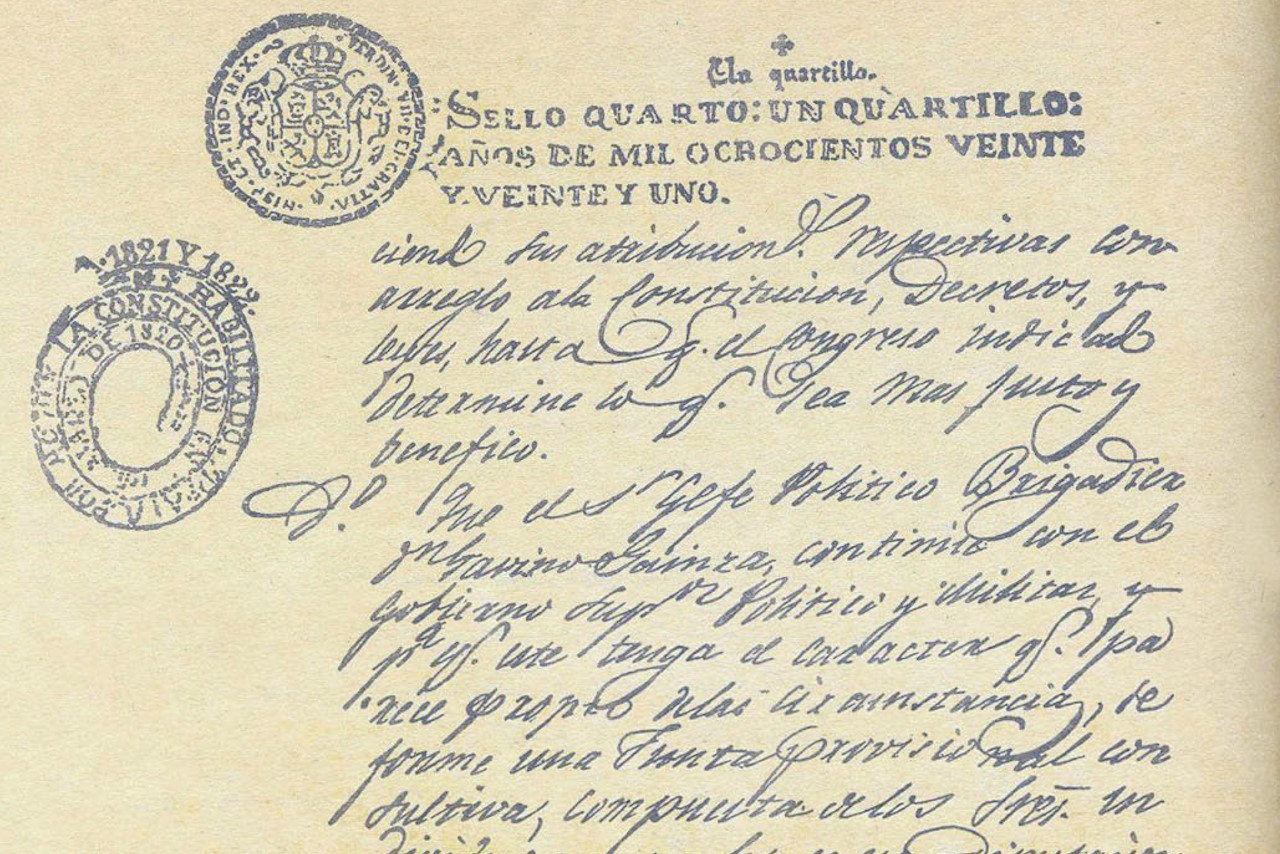 Un quartillo.
SELLO QUARTO: UN QUARTILLO:
AÑOS DE MIL OCROCIENTOS VEINTE
Y VEINTE Y UNO.
HISP. ET IND. REX. FERDIN. VII. D. GRATIA.
A. 1821 Y 1822.
HABILITADO
LA CONSTITUCION
DE 1820
ciend sus atribucion.s respectivas con
arreglo ala Constitucion, Decretos, y
leyes, hasta q. el Congreso indicad
determine lo q. sea mas justo y
benefico.
8.o Que el Sr Gefe Politico Brigadier
Dn Gavino Gainza, continúe con el
Gobierno Supor Politico y Militar, y
pa q. este tenga el caracter q. pa
rece propio delas circunstancias, se
forme una Junta provisional con
sultiva, compuesta delos Sres. in